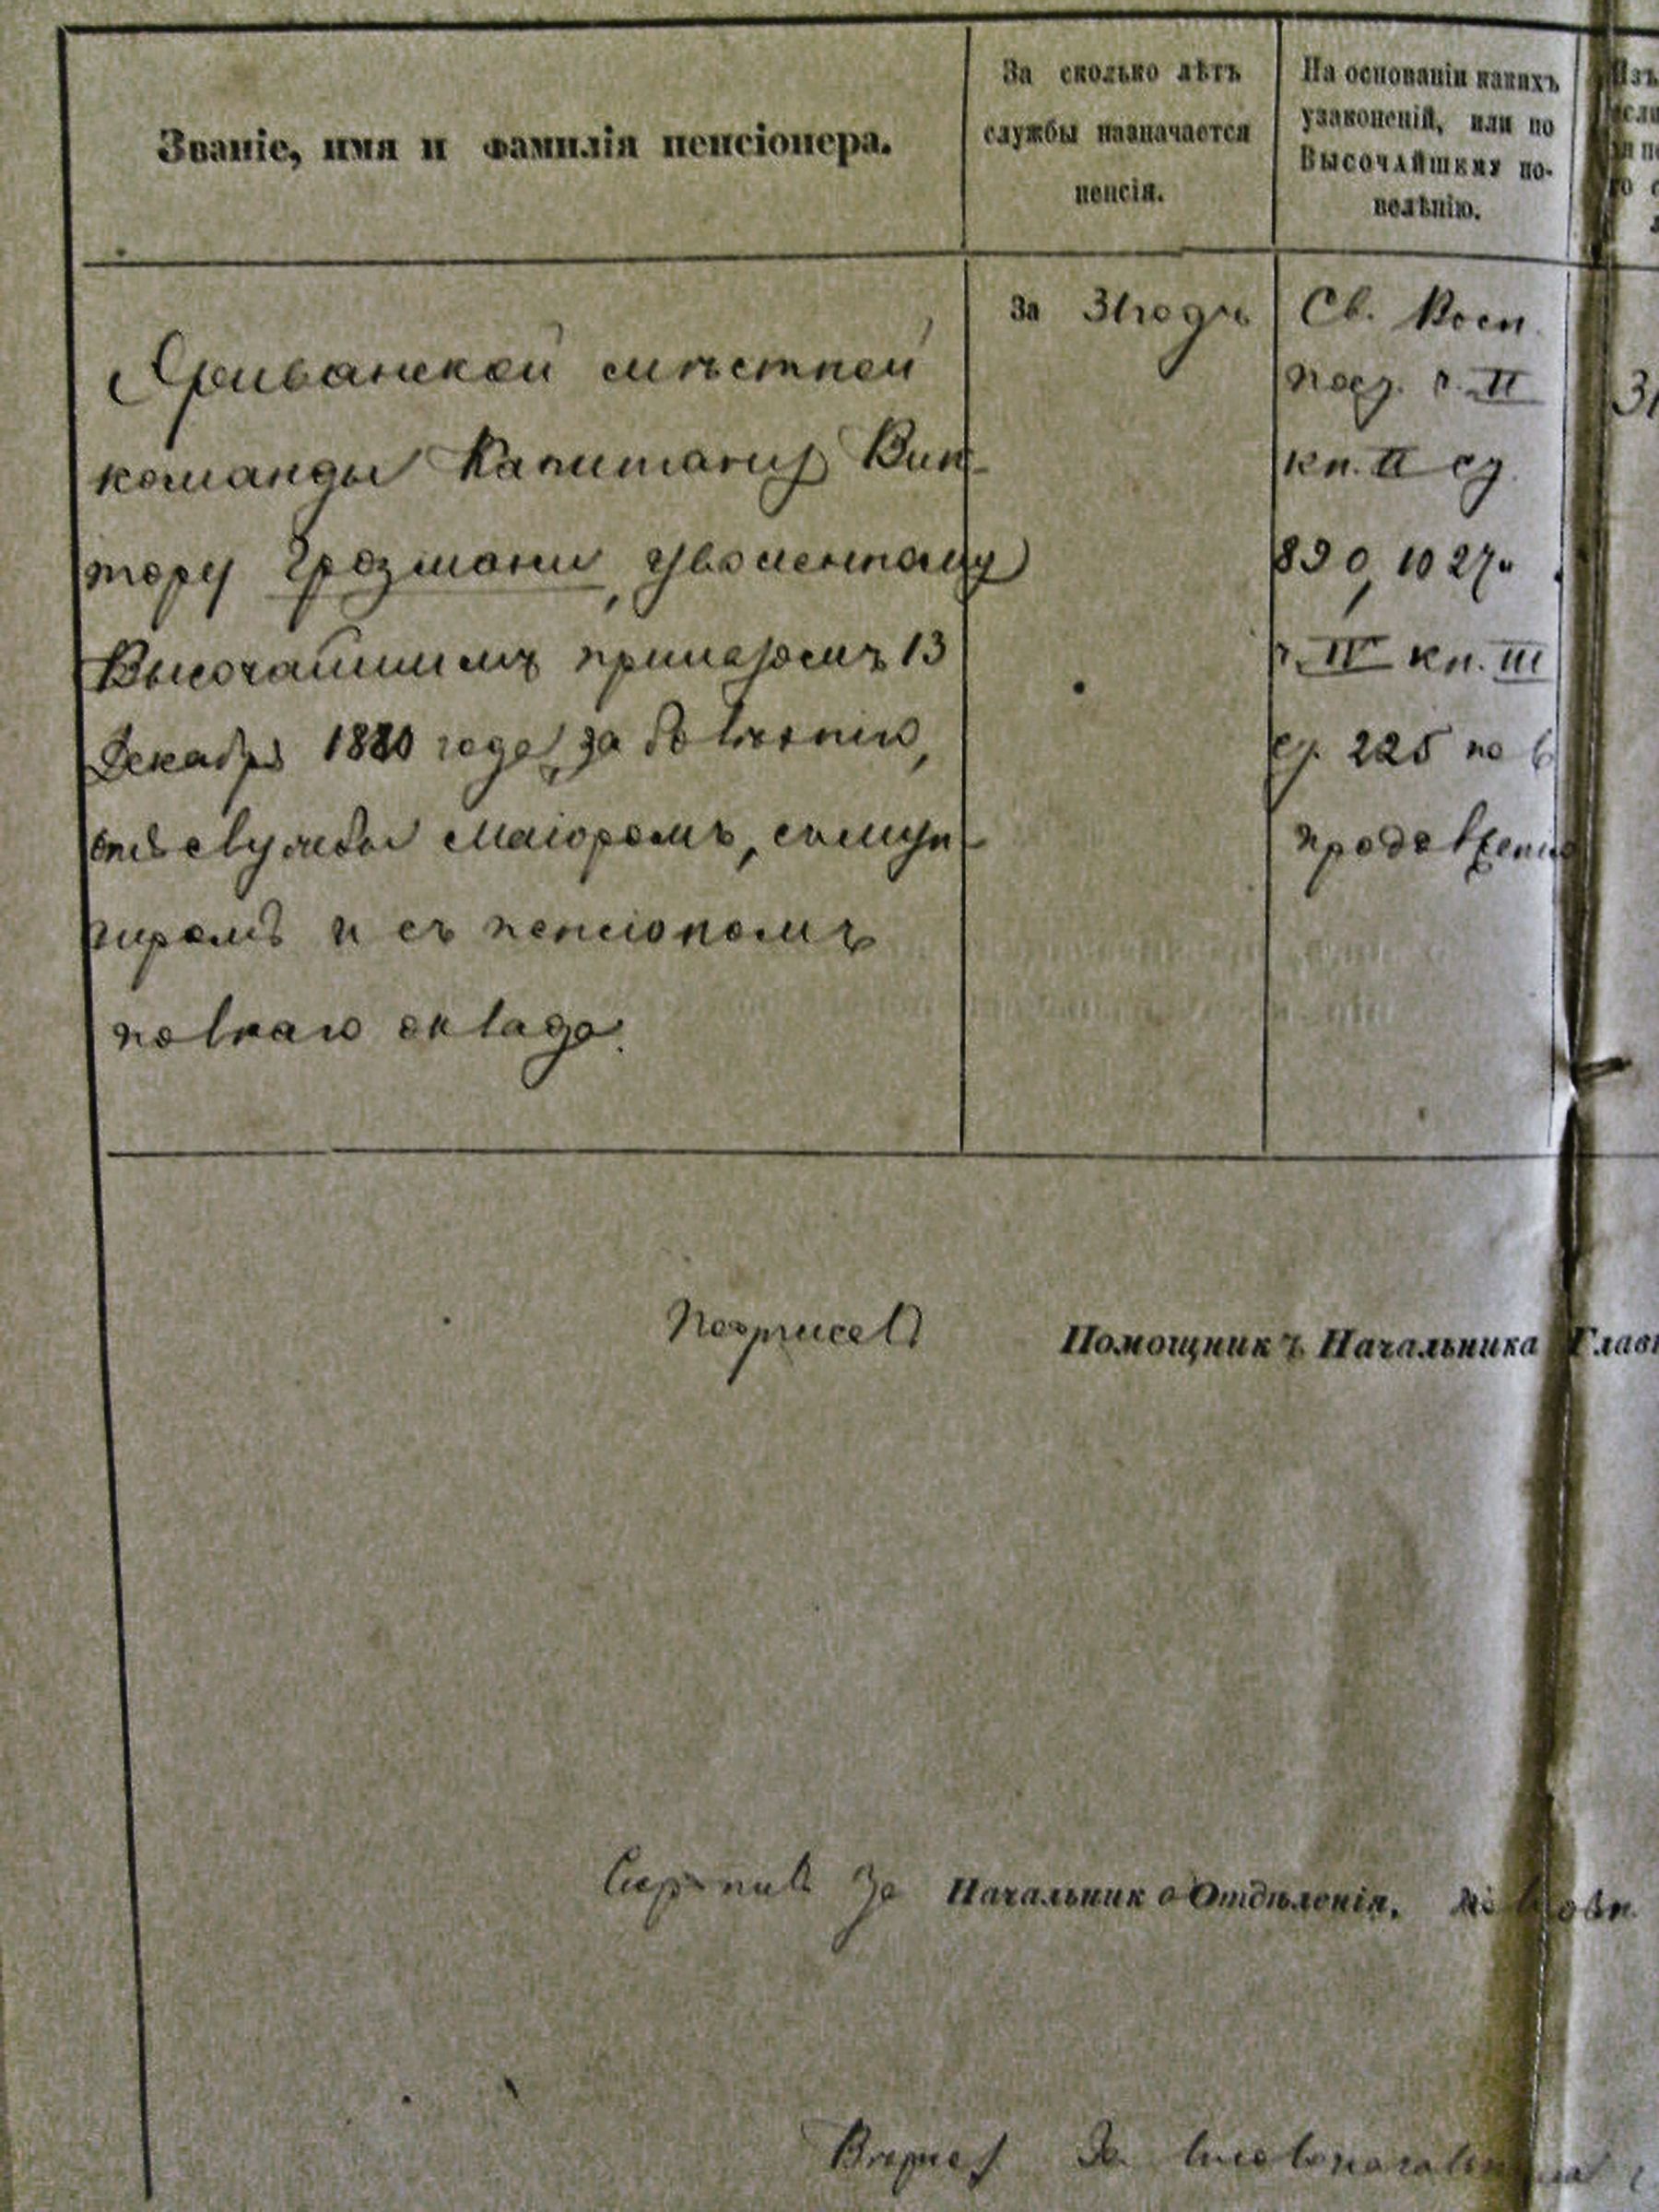 Званіе, имя и фамилія пенсіонера.
За сколько лѣтъ
службы назначается
пенсія.
На основаніи какихъ
узаконеній, или по
Высочайшему по-
велѣнію.
Эриванской мѣстной
команды Капитану Вик-
тору Грозмани, уволенному
Высочайшимъ приказомъ 13
Декабря 1880 года, за болѣзнію,
отъ службы Маіоромъ, съ мун-
диромъ и съ пенсіономъ
полнаго оклада.
За 31 годъ
Св. Воен.
пост. ч. II
кн. II ст.
890, 1027 и
ч. IV кн. III
ст. 225 по
продолженію
31
Подписалъ Помощникъ Начальника
Скрѣпилъ За Начальника Отдѣленія,
Вѣрно: За